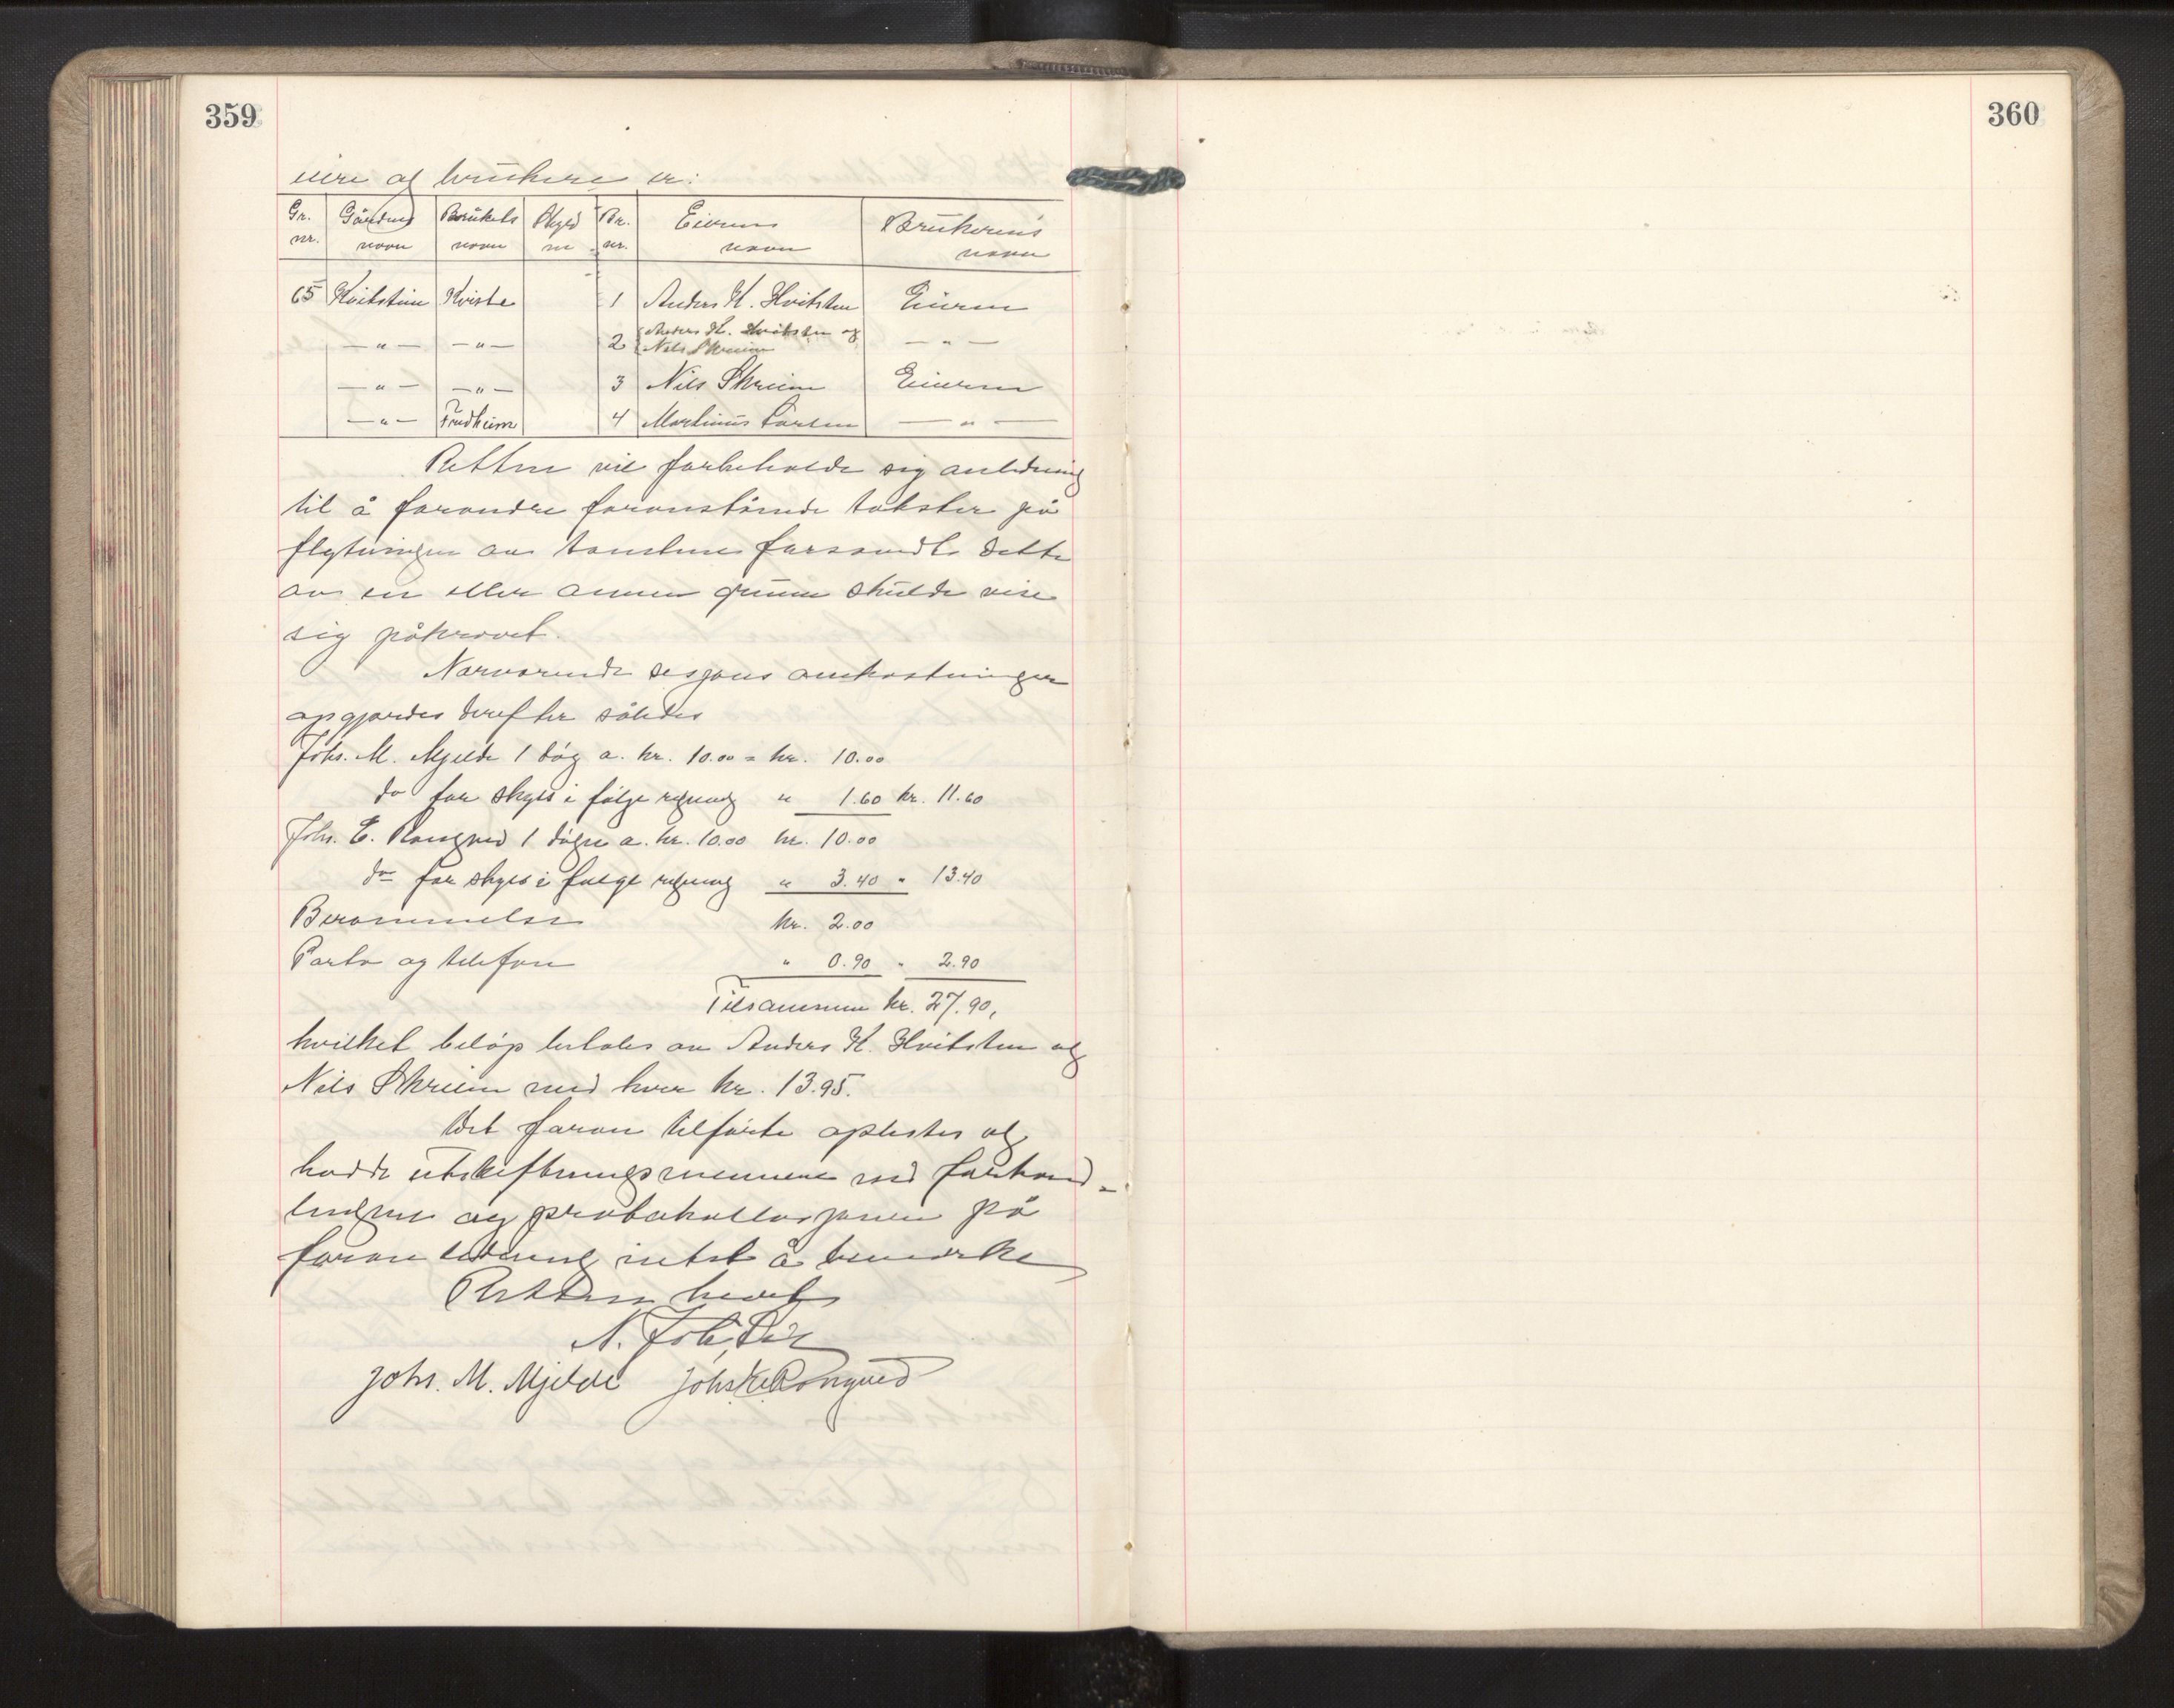 359
360
eiere og brukere er:
Gr. nr. Gårdens navn Brukets navn Skyld m Br. nr. Eierens navn Brukerens navn
65 Hvitstein Kviste 1 Anders K. Hvitsten Eieren
—"— —"— 2 Anders K. Hvitsten og Nils Skreien —"—
—"— —"— 3 Nils Skreien Eieren
—"— Fredheim 4 Martinus Larsen —"—
Retten vil forbeholde sig anledning
til å forandre foranstående takster på
flytningen av tomtene forsåvidt dette
av en eller annen grunn skulde vise
sig påkrevet.
Nærværende sesjons omkostninger
opgjordes derefter således
Johs. M. Mjelde 1 døg a. kr. 10.00 = kr. 10.00
do for skyss i følge regning " 1.60 kr. 11.60
Johs. E. Rongved 1 døgn a. kr. 10.00 kr. 10.00
do for skyss i følge regning " 3.40 " 13.40
Berammelse kr. 2.00
Porto og telefon " 0.90 " 2.90
Tilsammen kr. 27.90,
hvilket beløp betales av Anders K. Hvitsten og
Nils Skreien med hver kr. 13.95.
Det foran tilførte oplestes og
hadde utskiftningsmennene ved forhand-
lingene og protokollasjonen på
foranledning intet å bemerke
Retten hevet
N. Joh.
Johs. M. Mjelde Johs E Rongved